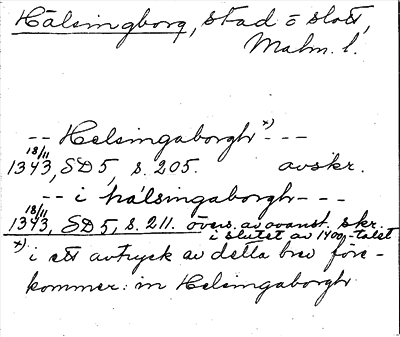 Hälsingborg, stad o slott,
Malm. l.
-- Helsingaborgh *) ---
18/11
1343, SD 5, s. 205. avskr.
-- i hälsingaborgh ---
18/11
1343, SD 5, s. 211. övers. av ovanst. skr.
i slutet av 1400-talet
*) i ett avtryck av detta brev före-
kommer: in Helsingaborgh